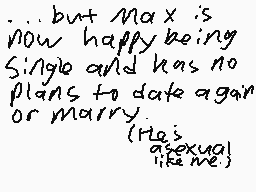 ... but Max is
now happy being
single and has no
plans to date again
or marry.
(He's
asexual
like me.)